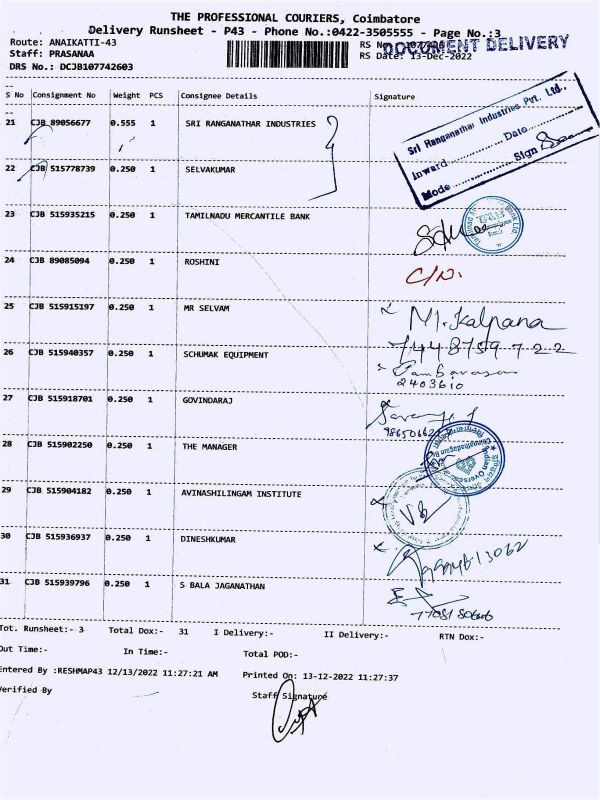 THE PROFESSIONAL COURIERS, Coimbatore
Delivery Runsheet - P43 - Phone No.:0422-3505555 - Page No.:3
Route: ANAIKATTI-43
RS No
DOCUMENT DELIVERY
Staff: PRASANAA
RS Date: 13-Dec-2022
DRS No.: DCJB107742603
S No Consignment No Weight PCS Consignee Details Signature
21 CJB 89056677 0.555 1 SRI RANGANATHAR INDUSTRIES
Sri Ranganathar Industries Pvt. Ltd.,
Inward Date
Mode Sign
22 CJB 515778739 0.250 1 SELVAKUMAR
23 CJB 515935215 0.250 1 TAMILNADU MERCANTILE BANK
24 CJB 89085094 0.250 1 ROSHINI
25 CJB 515915197 0.250 1 MR SELVAM
M. Kalpana
7448759722
26 CJB 515940357 0.250 1 SCHUMAK EQUIPMENT
2403610
27 CJB 515918701 0.250 1 GOVINDARAJ
28 CJB 515902250 0.250 1 THE MANAGER
29 CJB 515904182 0.250 1 AVINASHILINGAM INSTITUTE
30 CJB 515936937 0.250 1 DINESHKUMAR
31 CJB 515939796 0.250 1 S BALA JAGANATHAN
Tot. Runsheet:- 3 Total Dox:- 31 I Delivery:- II Delivery:- RTN Dox:-
Out Time:- In Time:- Total POD:-
Entered By :RESHMAP43 12/13/2022 11:27:21 AM Printed On: 13-12-2022 11:27:37
Verified By Staff Signature